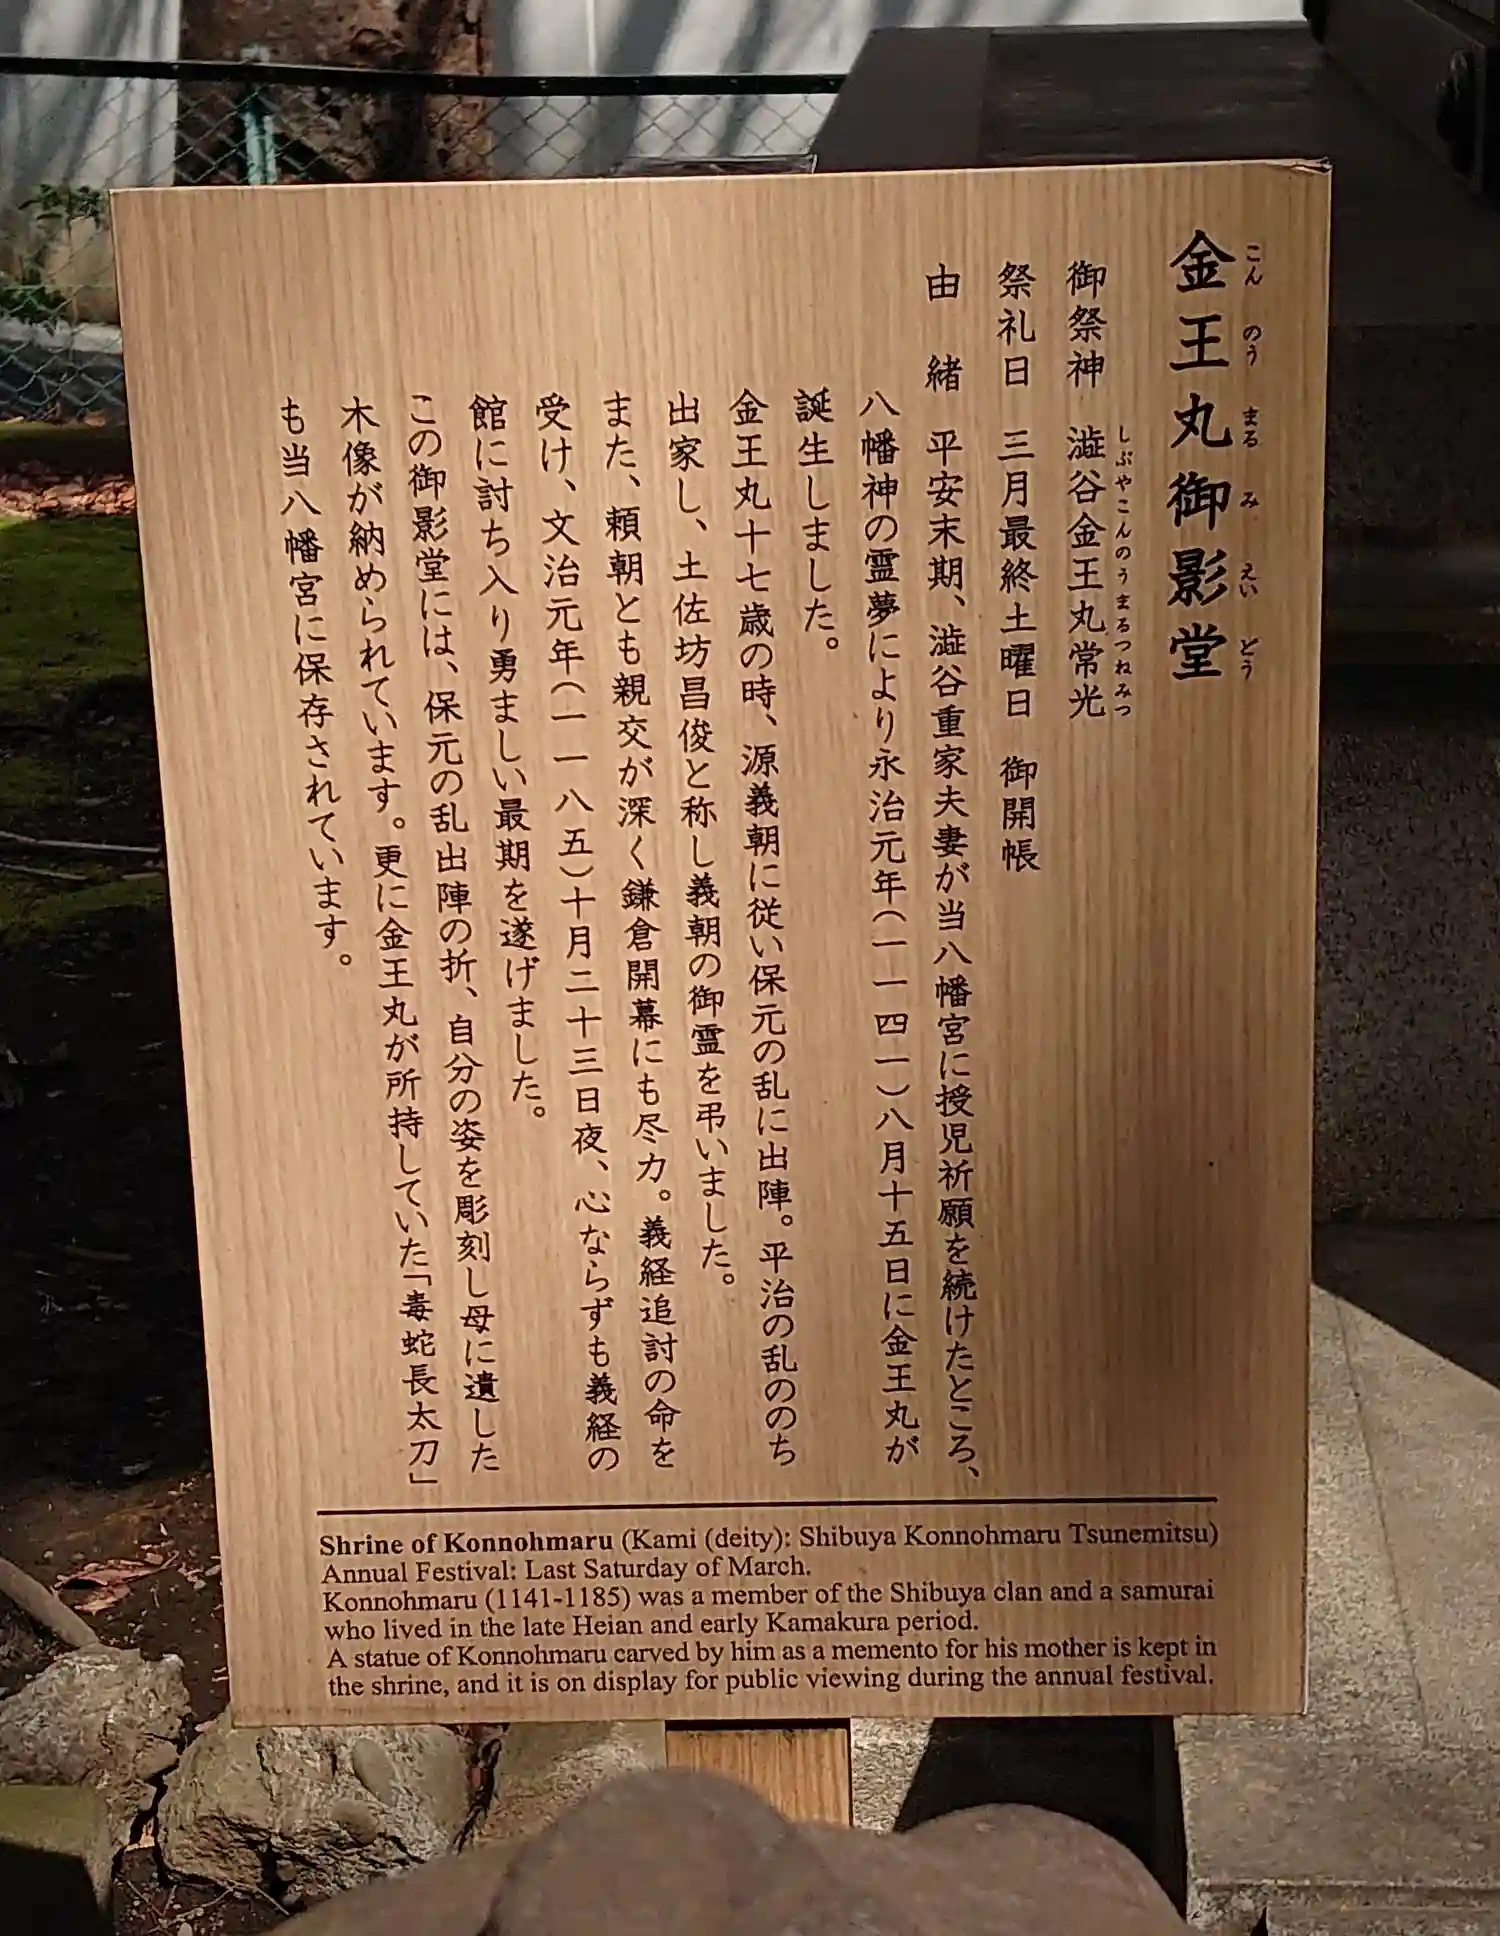 金王丸御影堂
こんのうまるみえいどう
御祭神 澁谷金王丸常光
しぶやこんのうまるつねみつ
祭礼日 三月最終土曜日 御開帳
由 緒 平安末期、澁谷重家夫妻が当八幡宮に授児祈願を続けたところ、
八幡神の霊夢により永治元年(一一四一)八月十五日に金王丸が
誕生しました。
金王丸十七歳の時、源義朝に従い保元の乱に出陣。平治の乱ののち
出家し、土佐坊昌俊と称し義朝の御霊を弔いました。
また、頼朝とも親交が深く鎌倉開幕にも尽力。義経追討の命を
受け、文治元年(一一八五)十月二十三日夜、心ならずも義経の
館に討ち入り勇ましい最期を遂げました。
この御影堂には、保元の乱出陣の折、自分の姿を彫刻し母に遺した
木像が納められています。更に金王丸が所持していた「毒蛇長太刀」
も当八幡宮に保存されています。
Shrine of Konnohmaru (Kami (deity): Shibuya Konnohmaru Tsunemitsu)
Annual Festival: Last Saturday of March.
Konnohmaru (1141-1185) was a member of the Shibuya clan and a samurai
who lived in the late Heian and early Kamakura period.
A statue of Konnohmaru carved by him as a memento for his mother is kept in
the shrine, and it is on display for public viewing during the annual festival.